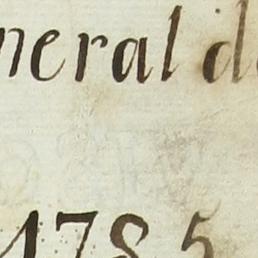 neral de
1785